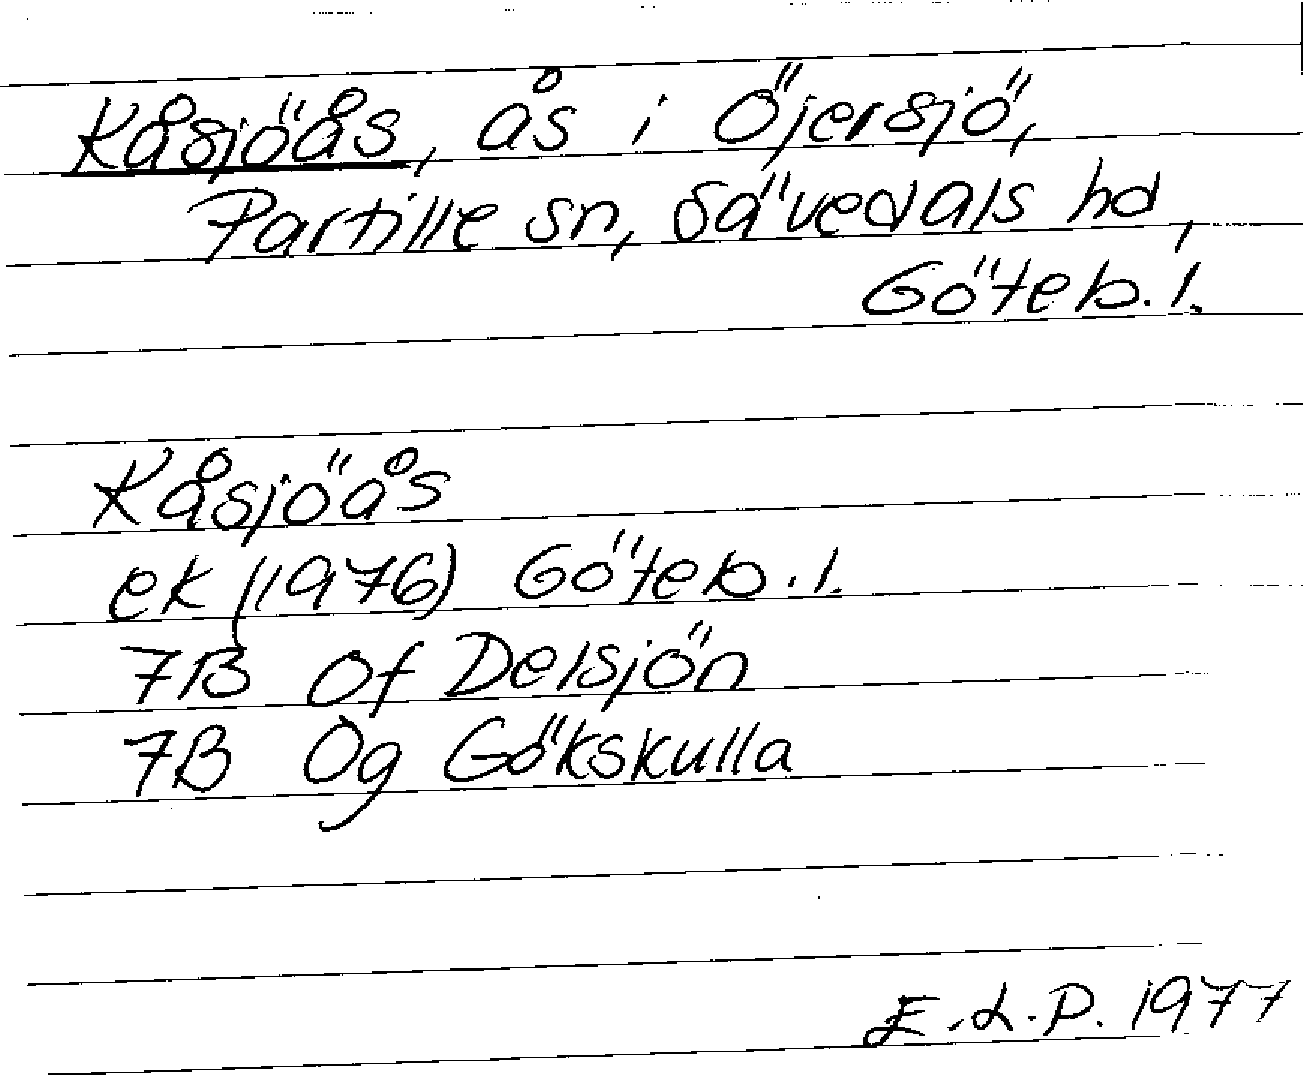 Kåsjöås, ås i Öjersjö,
Partille sn, Sävedals hd,
Göteb. l.
Kåsjöås
ek (1976) Göteb. l.
7B 0f Delsjön
7B 0g Gökskulla
E.L.P. 1977